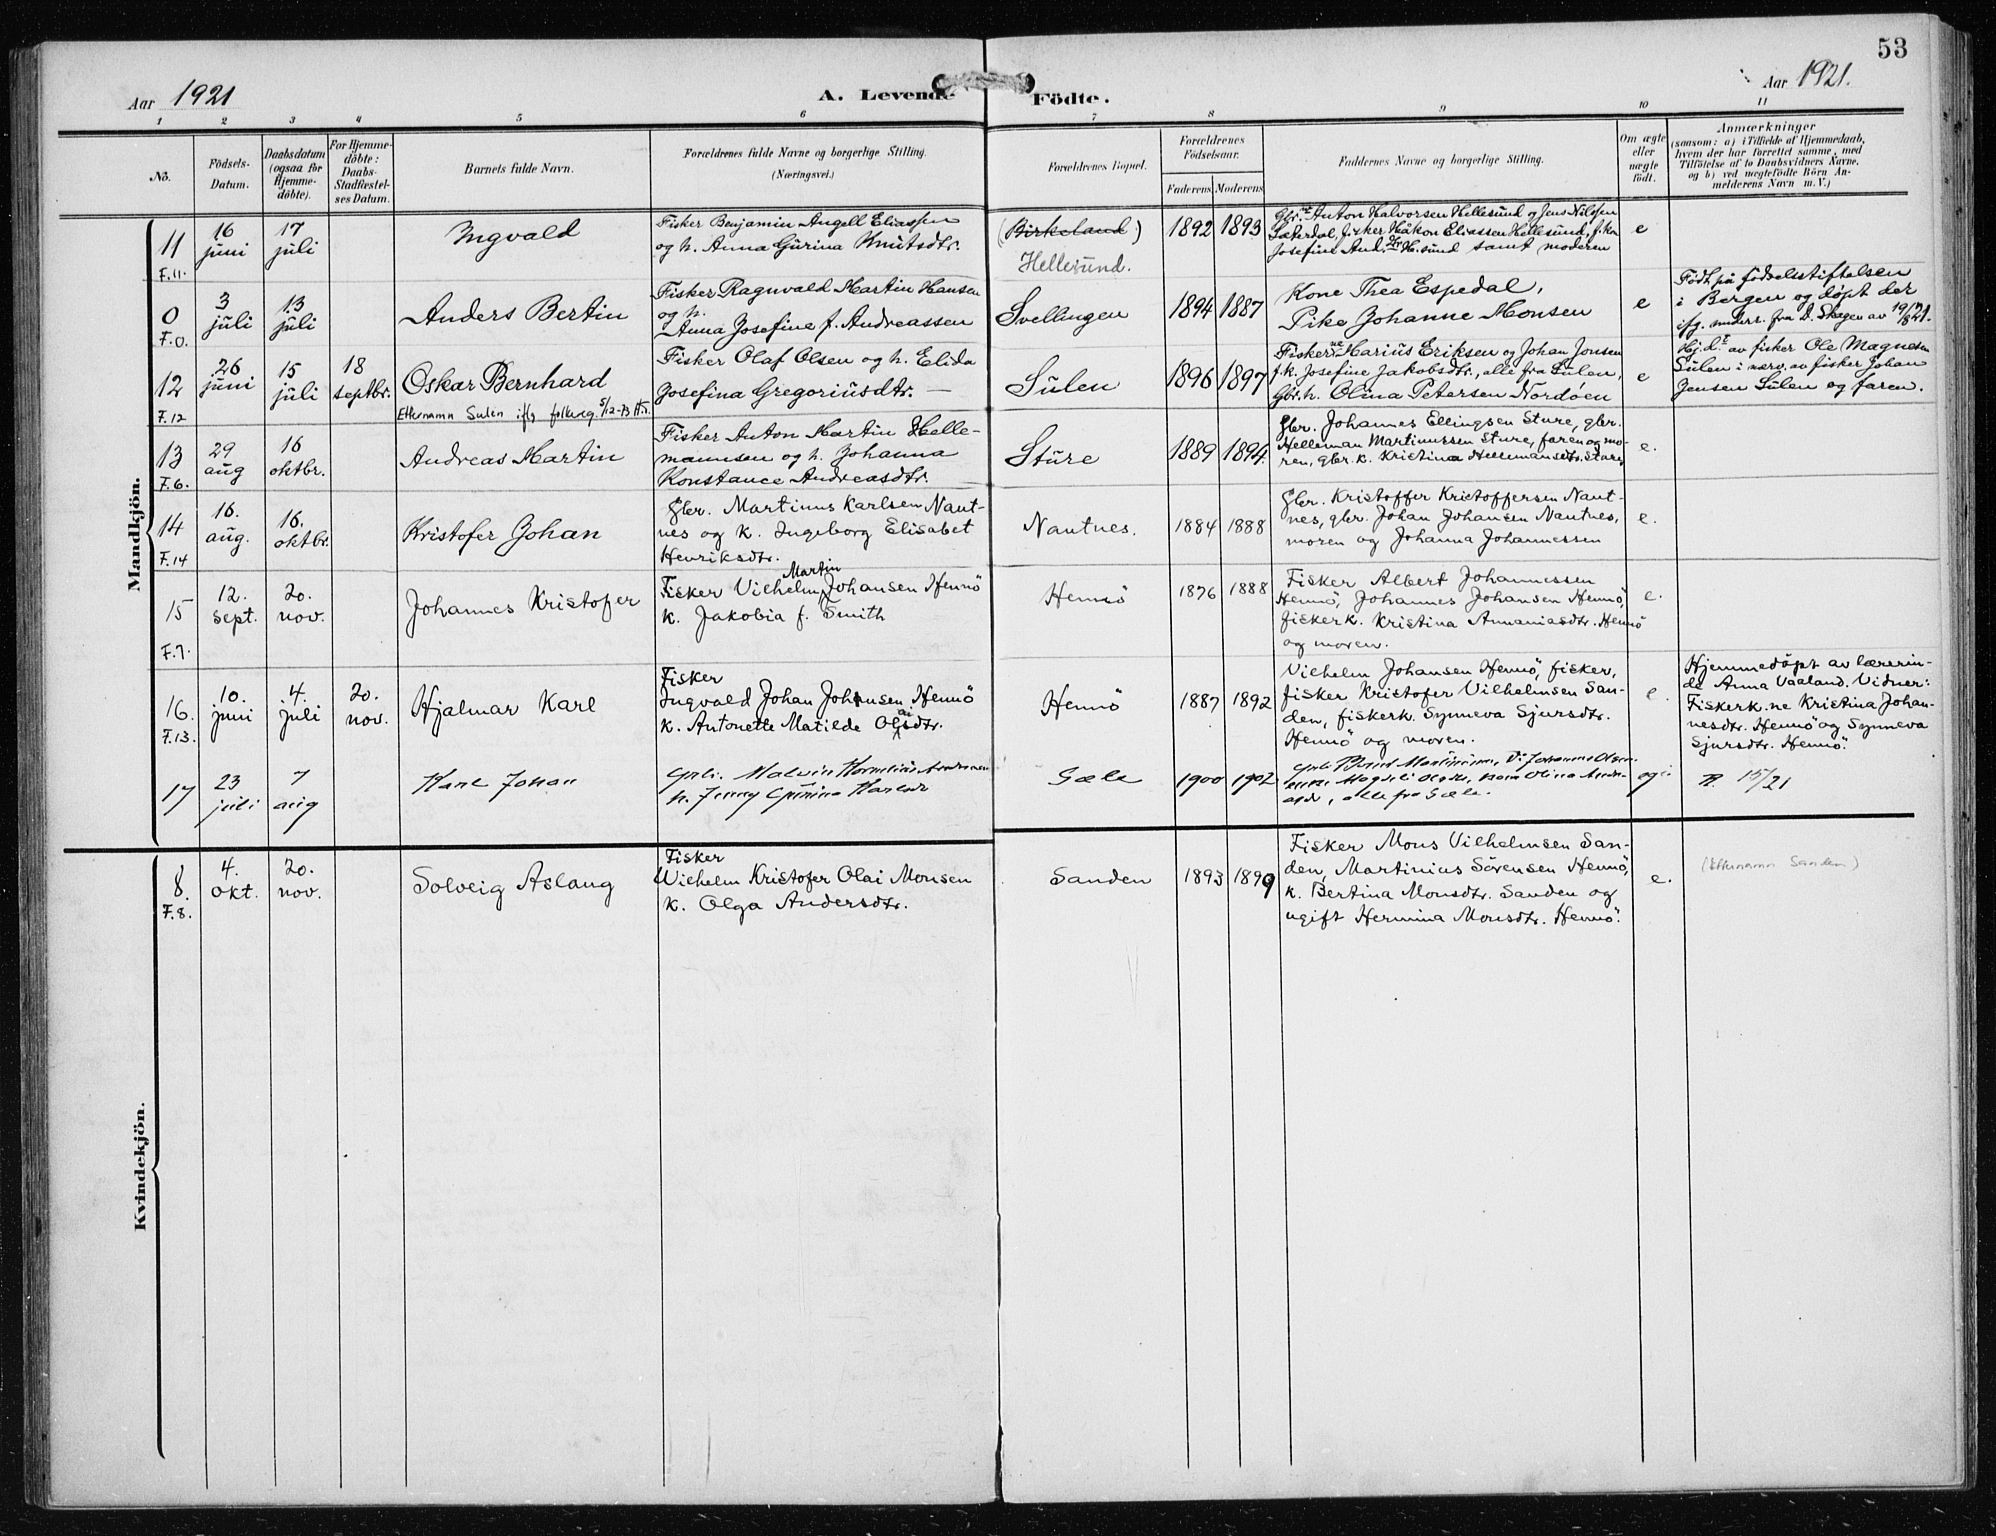 53
Aar 1921
A. Levende Födte.
Aar 1921.
1 2 3 4 5 6 7 8 9 10 11
No.
Födsels-
Datum.
Daabsdatum
(ogsaa for
Hjemme-
döbte).
For Hjemme-
döbte:
Daabs-
Stadfæstel-
ses Datum.
Barnets fulde Navn.
Forældrenes fulde Navne og borgerlige Stilling.
(Næringsvei.)
Forældrenes Bopæl.
Forældrenes
Födselsaar.
Faderens Moderens
Faddernes Navne og borgerlige Stilling.
Om ægte
eller
uægte
födt.
Anmærkninger
(saasom: a) i Tilfælde af Hjemmedaab,
hvem der har forrettet samme, med
Tilföielse af to Daabsvidners Navne,
og b) ved uægtefödte Börn An-
melderens Navn m.V.)
Mandkjön.
11
F.11.
16
juni
17
juli
Ingvald
Fisker Benjamin Angell Eliassen
og h. Anna Gurina Knutsdtr.
(Birkeland)
Hellesund.
1892 1893
Gbr.ne Anton Halvorsen Hellesund og Jens Nilssen
Sæterdal, fisker Håkon Eliassen Hellesund, f.kon
Josefine And. H.sund samt moderen
e
0
F.0.
3
juli
13
juli
Anders Bertin
Fisker Ragnvald Martin Hansen
og h.
Anna Josefine f. Andreassen
Svellingen
1894 1887
Kone Thea Espedal,
Pike Johanne Monsen
e
Født på fødselsstiftelsen
i Bergen og døpt der
ifg. underr. fra D. Skagen av 19/8 21.
12
F.12
26
juni
15
juli
18
septbr.
Oskar Bernhard
Etternamn Sulen ifg folkereg. 5/12-73
Fisker Olaf Olsen og h. Elida
Josefina Gregoriusdtr.
Sulen
1896 1897
Fiskerne Marius Eriksen og Johan Jonsen
f.k. Josefine Jakobsdtr., alle fra Sulen,
Gbr.h. Olina Petersen Nordøen
e
Hj.d. av fisker Ole Magnesen
Sulen i nærv. av fisker Johan
Jensen Sulen og faren.
13
F.6.
29
aug
16
oktbr.
Andreas Martin
Fisker Anton Martin Helle-
mannsen og h. Johanna
Konstance Andreasdtr.
Sture
1889 1894
Gbr. Johannes Ellingsen Sture, gbr.
Helleman Martinussen Sture, faren og mo-
ren, gbr.k. Kristina Hellemansdtr. Sture
e.
14
F.14
16.
aug.
16.
oktbr.
Kristofer Johan
Gbr. Martinus Karlsen Naut-
nes og k. Ingeborg Elisabet
Henriksdtr.
Nautnes.
1884 1888
Gbr. Kristoffer Kristoffersen Naut-
nes, gbr. Johan Johansen Nautnes,
moren og Johanna Johannessen
e.
15
F.7.
12.
sept.
20.
nov.
Johannes Kristofer
Martin
Fisker Vilhelm Johansen Hennö
k. Jakobia f. Smith
Hennö
1876 1888
Fisker Albert Johannessen
Hennö, Johannes Johansen Hennö,
fiskerk. Kristina Annaniasdtr. Hennö
og moren.
e.
16.
F.13.
10.
juni
4.
juli
20.
nov.
Hjalmar Karl
Fisker
Ingvald Johan Johansen Hennö
k. Antonette Matilde Olsdtr.
Hennö
1887 1892
Vilhelm Johansen Hennö, fisker,
fisker Kristofer Vilhelmsen San-
den, fiskerk. Synneva Sjursdtr.
Hennö og moren.
e.
Hjemmedöpt av lærerin-
de Anna Vaaland. Vidner:
Fiskerk.ne Kristina Johan-
nesdtr. Hennö og Synneva
Sjursdtr. Hennö.
17
23
juli
7
aug
Karl Johan
Malvin Kornelius
h. Jenny Gurina Karlsdtr
Sæle
1900 1902
alle fra Sæle.
15/21
Kvindekjön.
8.
F.8.
4.
okt.
20.
nov.
Solveig Aslaug
Fisker
Wilhelm Kristofer Olai Monsen
k. Olga Andersdtr.
Sanden
1893 1899
Fisker Mons Vilhelmsen San-
den, Martinius Sörensen Hennö,
k. Bertina Monsdtr. Sanden og
ugift Hermina Monsdtr. Hennö.
e.
(Etternamn Sanden)